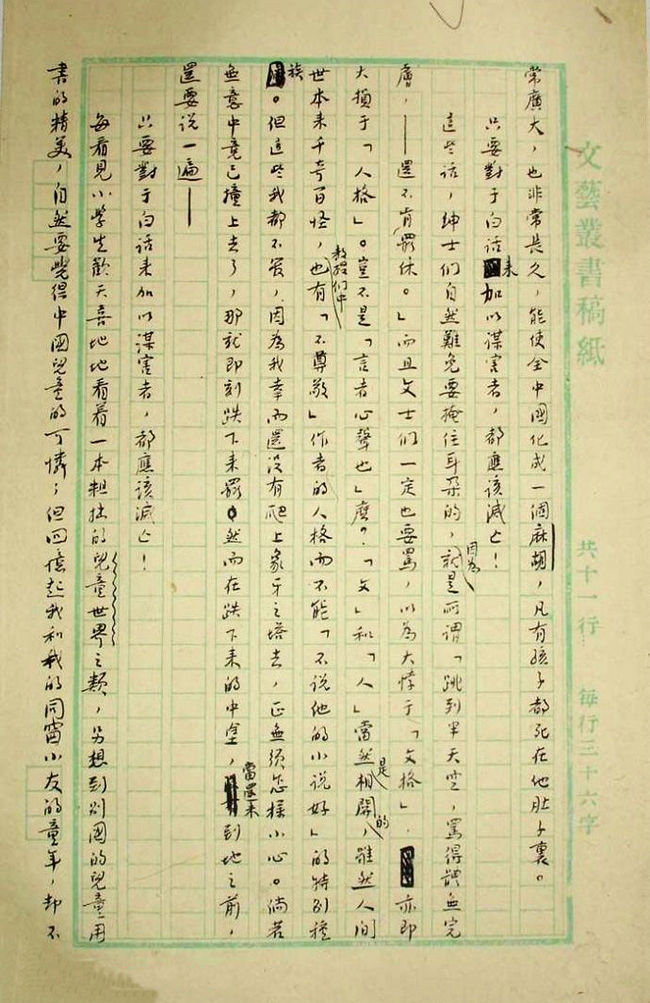 文藝叢書稿紙 共十一行 每行三十六字
常廣大，也非常長久，能使全中國化成一個麻胡，凡有孩子都死在他肚子裏。
只要對于白話來加以謀害者，都應該滅亡！
這些話，紳士們自然難免要掩住耳朵的，因為就是所謂「跳到半天空，罵得體無完
膚，——還不肯罷休。」而且文士們一定也要罵，以為大悖于「文格」，亦即
大損于「人格」。豈不是「言者心聲也」麼？「文」和「人」當然是相關的，雖然人間
世本來千奇百怪，教授們中也有「不尊敬」作者的人格而不能「不说他的小说好」的特別種
族。但這些我都不管，因為我幸而還没有爬上象牙之塔去，正無須怎樣小心。倘若
無意中竟已撞上去了，那就即刻跌下来罷。然而在跌下来的中途，當還未到地之前，
還要说一遍——
只要對于白話来加以謀害者，都應該滅亡！
每看見小學生歡天喜地地看着一本粗拙的兒童世界之類，另想到別國的兒童用
書的精美，自然要覺得中國兒童的可憐；但回憶起我和我的同窗小友的童年，却不